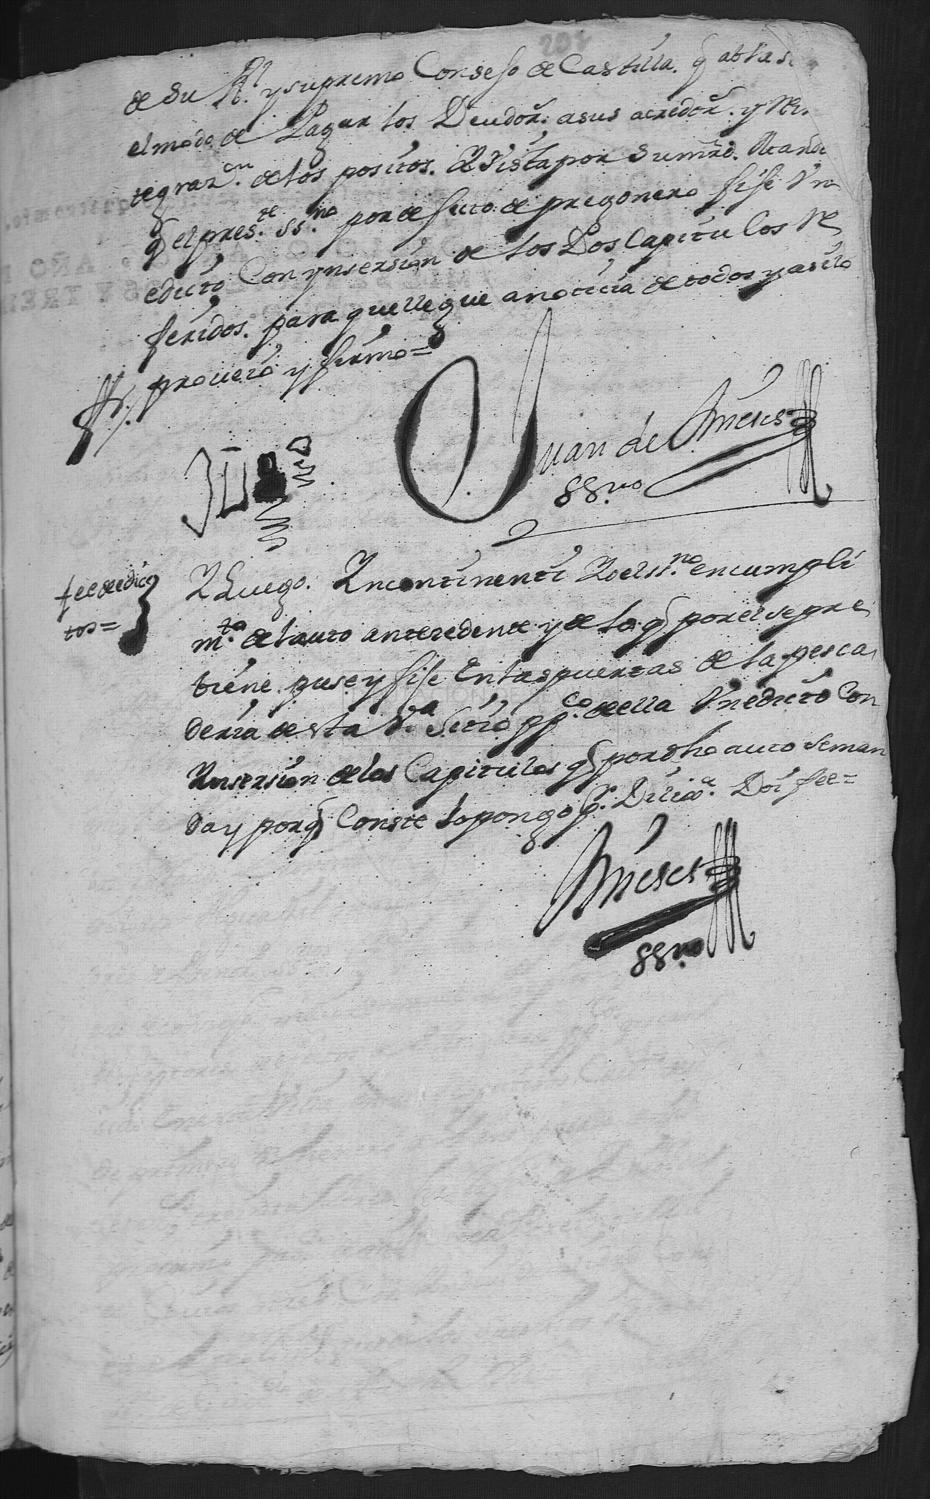 de su Rl. y supremo Consejo de Castilla. q abla s
el modo de Pagar los Deudor.s a sus acredor.s y Re
tegraz.on de los positos. E Vista por su mrd. Mando
q el pres.te ss.no por defecto de pregonero fije Vn
edicto Con ynsersion de los Dos Capitulos Re
feridos. para que llegue a noticia de todos y asi lo
proveio y firmo =
Juan de Meses
ss.no
fee de edic
tos =
Y Luego. Yncontinenti Yo el ss.no en cumpli
m.to de lauto antecedente y de lo q por el se pre
biene puse y fije En las puertas de la pesca
deria de sta V.a Sitio pp.co de ella Vn edicto Con
Ynsersion de los Capitulos q por dho auto se man
da y porq Conste lo pongo p.r Dilix.a Doi fee =
Meses
ss.no